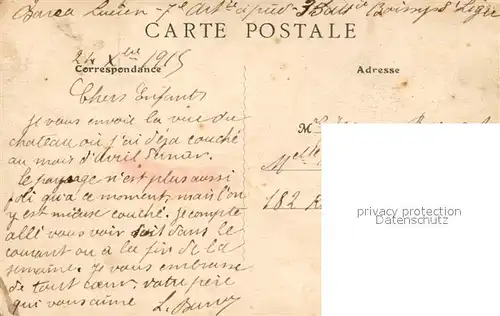 Barca Lucien - 7e Artie à pied - 3 Batt ie Boissy St Léger
CARTE POSTALE
24 Xbre 1915
Correspondance
Adresse
Chers Enfants
je vous envoie la vue du
chateau où j'ai déja couché
au mois d'avril dernier.
le paysage n'est plus aussi
joli qu'a ce moment, mais l'on
y est mieux couché. Je compte
allé vous voir soit dans le
courant ou a la fin de la
semaine. Je vous embrasse
de tout cœur. votre père
qui vous aime
L. Barca
M
182 R
physical copyright protection
protection du droit d'auteur physique